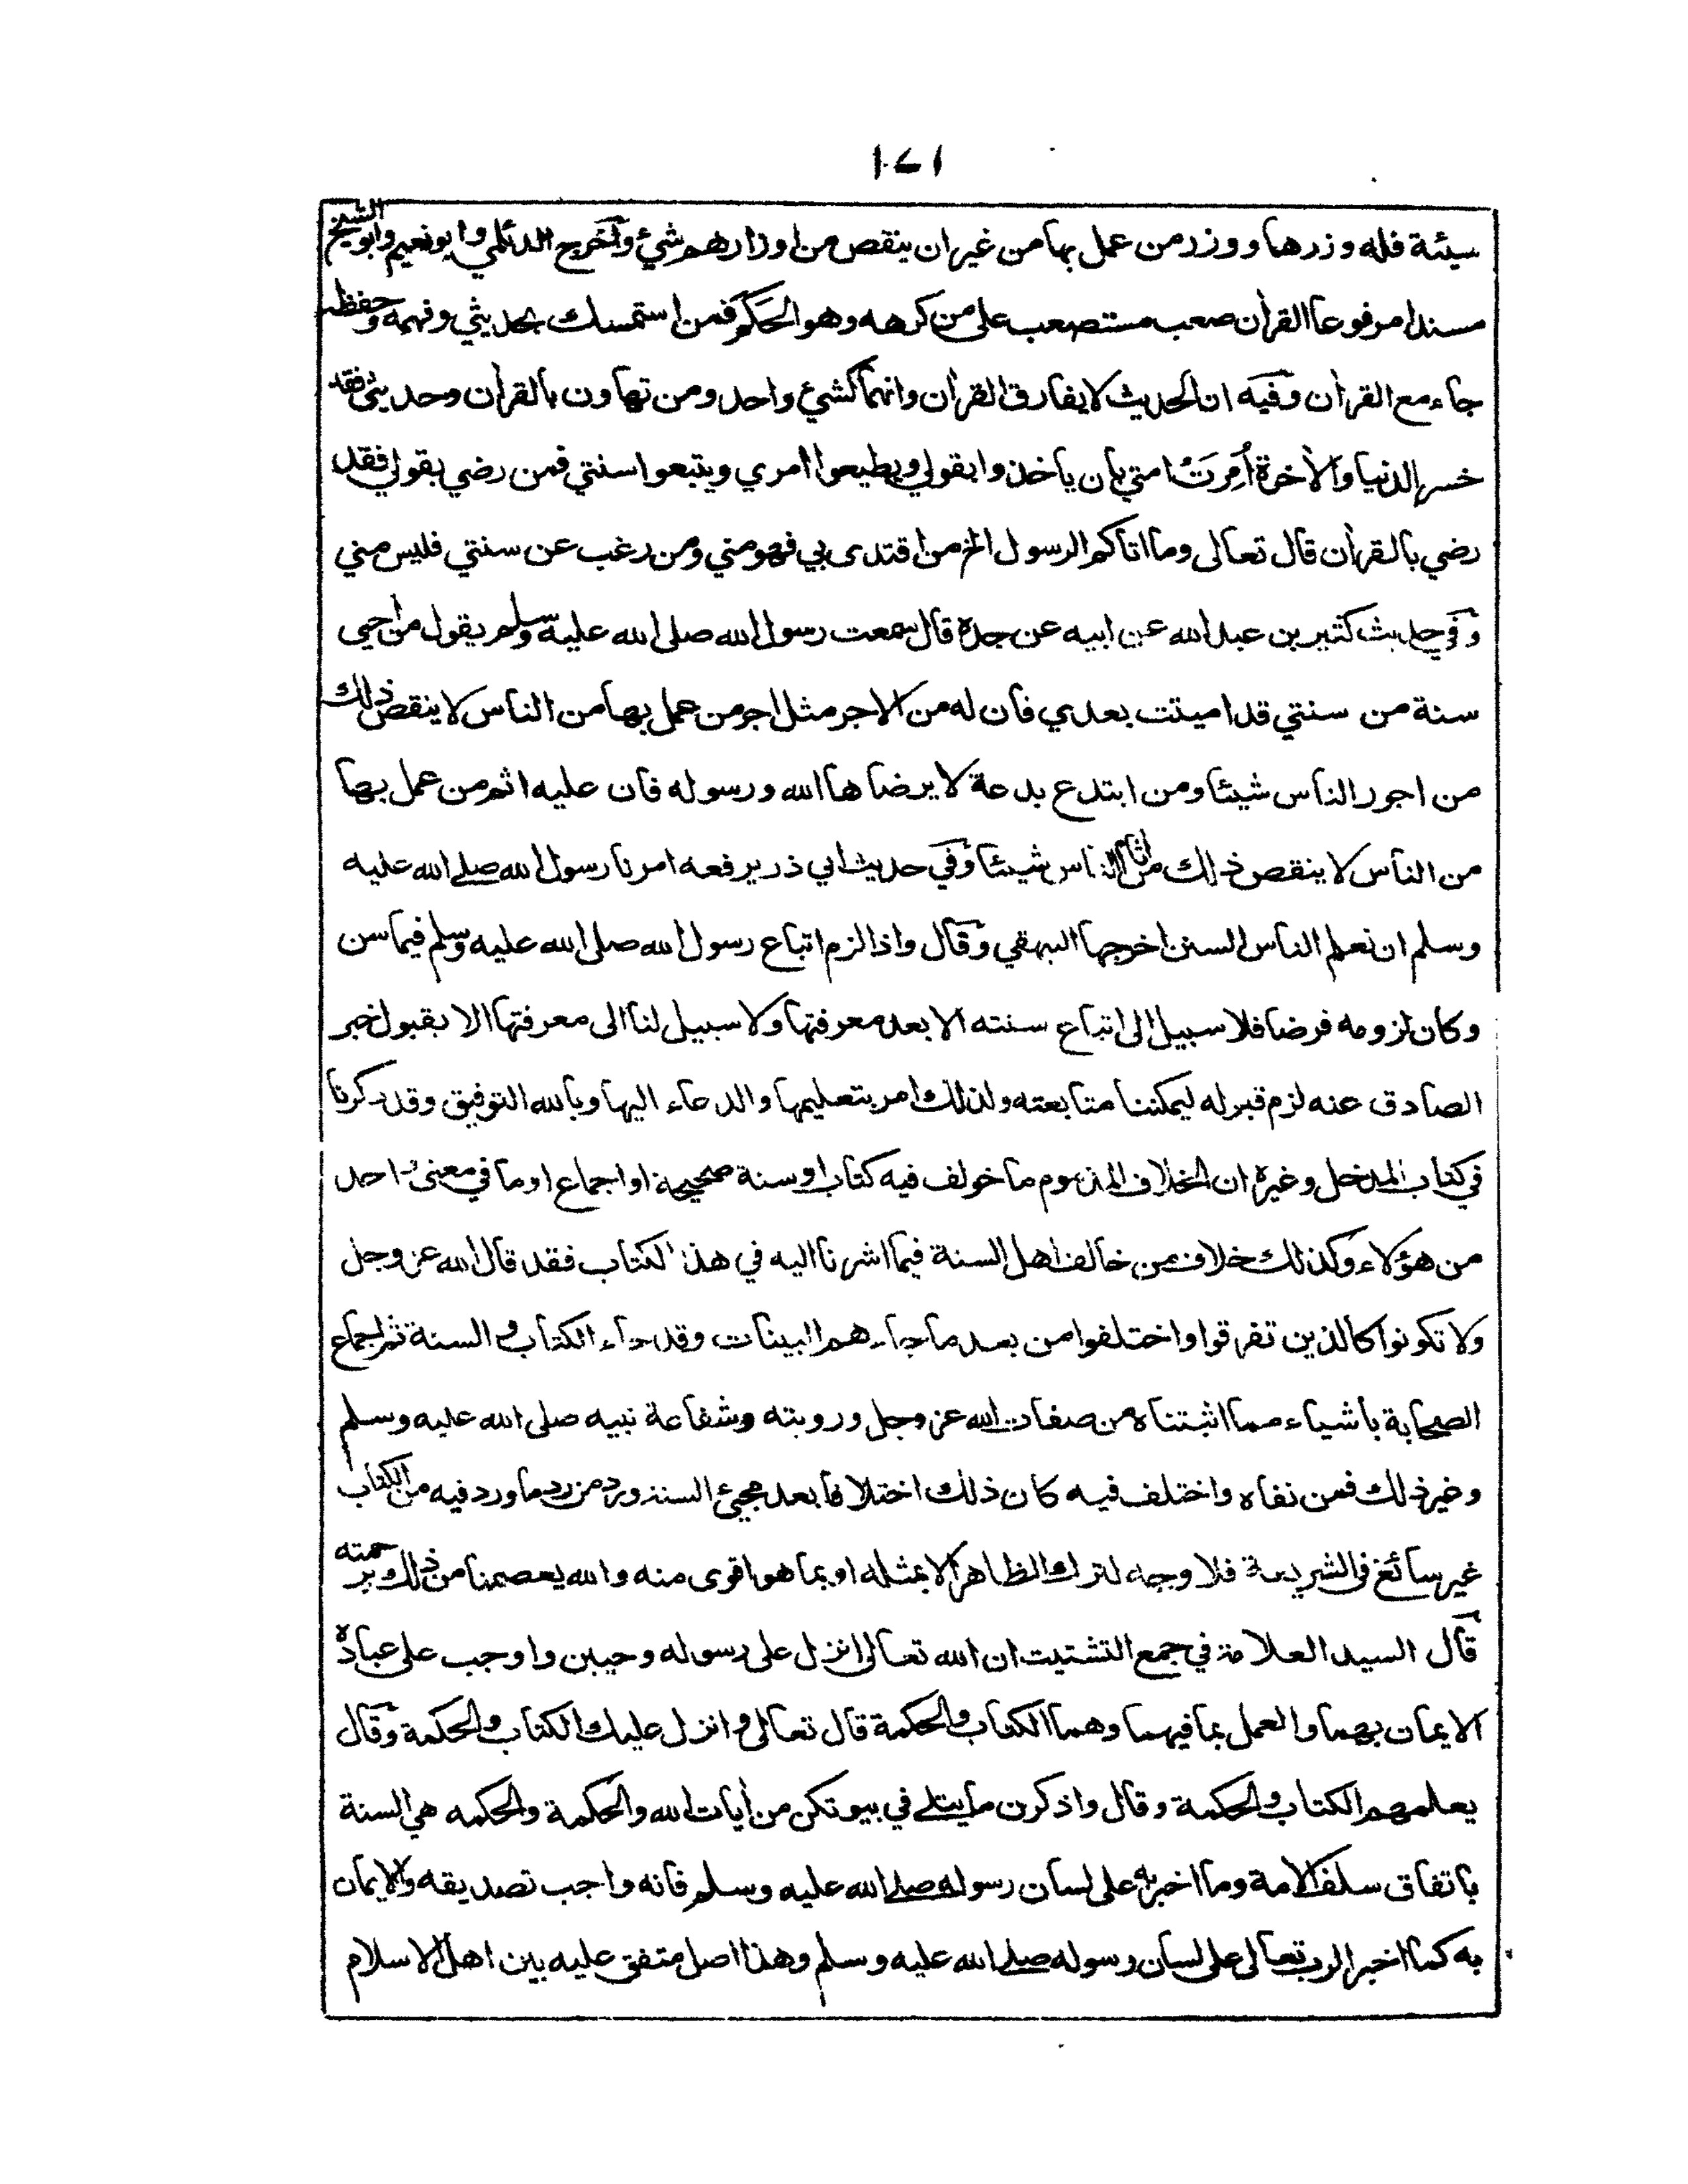 ١٧١
سيئة فله وزرها ووزر من عمل بها من غير ان ينقص من اوزارهم شيء وآخرج الديلمي وابو نعيم وابو الشيخ
مسندا مرفوعا القرآن صعب مستصعب على من كرهه وهو الحَكَم فمن استمسك بحديثي وفهمه وحفظه
جاء مع القرآن وفيه ان الحديث لا يفارق القرآن وانهما كشيء واحد ومن تهاون بالقرآن وحديثي فقد
خسر الدنيا والآخرة أُمِرَتْ امتي بان ياخذوا بقولي ويطيعوا امري ويتبعوا سنتي فمن رضي بقولي فقد
رضي بالقرآن قال تعالى وما اتاكم الرسول الخ من اقتدى بي فهو مني ومن رغب عن سنتي فليس مني
وفي حديث كثير بن عبد الله عن ابيه عن جده قال سمعت رسول الله صلى الله عليه وسلم يقول من احيى
سنة من سنتي قد اميتت بعدي فان له من الاجر مثل اجر من عمل بها من الناس لا ينقص ذلك
من اجور الناس شيئا ومن ابتدع بدعة لا يرضاها الله ورسوله فان عليه اثم من عمل بها
من الناس لا ينقص ذلك من اثام الناس شيئا وفي حديث ابي ذر يرفعه امرنا رسول الله صلى الله عليه
وسلم ان نعلم الناس السنن اخرجها البيهقي وقال واذا لزم اتباع رسول الله صلى الله عليه وسلم فيما سن
وكان لزومه فرضا فلا سبيل الى اتباع سنته الا بعد معرفتها ولا سبيل لنا الى معرفتها الا بقبول خبر
الصادق عنه لزم قبوله ليمكننا متابعته ولذلك امر بتعليمها والدعاء اليها وبالله التوفيق وقد ذكرنا
في كتاب المدخل وغيره ان الخلاف المذموم ما خولف فيه كتاب او سنة صحيحة او اجماع او ما في معنى واحد
من هؤلاء وكذلك خلاف من خالف اهل السنة فيما اشرنا اليه في هذا الكتاب فقد قال الله عز وجل
ولا تكونوا كالذين تفرقوا واختلفوا من بعد ما جاءهم البينات وقد جاء الكتاب والسنة ثم اجماع
الصحابة باشياء مما اثبتناه من صفات الله عز وجل ورويته وشفاعة نبيه صلى الله عليه وسلم
وغير ذلك فمن نفاه واختلف فيه كان ذلك اختلافا بعد مجيء السنة ورد من رد ما ورد فيه من الكتاب
غير سائغ في الشريعة فلا وجه لترك الظاهر الا بمثله او بما هو اقوى منه والله يعصمنا من ذلك برحمته
قال السيد العلامة في جمع التشتيت ان الله تعالى انزل على رسوله وحيين واوجب على عباده
الايمان بهما والعمل بما فيهما وهما الكتاب والحكمة قال تعالى وانزل عليك الكتاب والحكمة وقال
يعلمهم الكتاب والحكمة وقال واذكرن ما يتلى في بيوتكن من آيات الله والحكمة والحكمه هي السنة
باتفاق سلف الامة وما اخبر به على لسان رسوله صلى الله عليه وسلم فانه واجب تصديقه والايمان
به كما اخبر الرب تعالى على لسان رسوله صلى الله عليه وسلم وهذا اصل متفق عليه بين اهل الاسلام